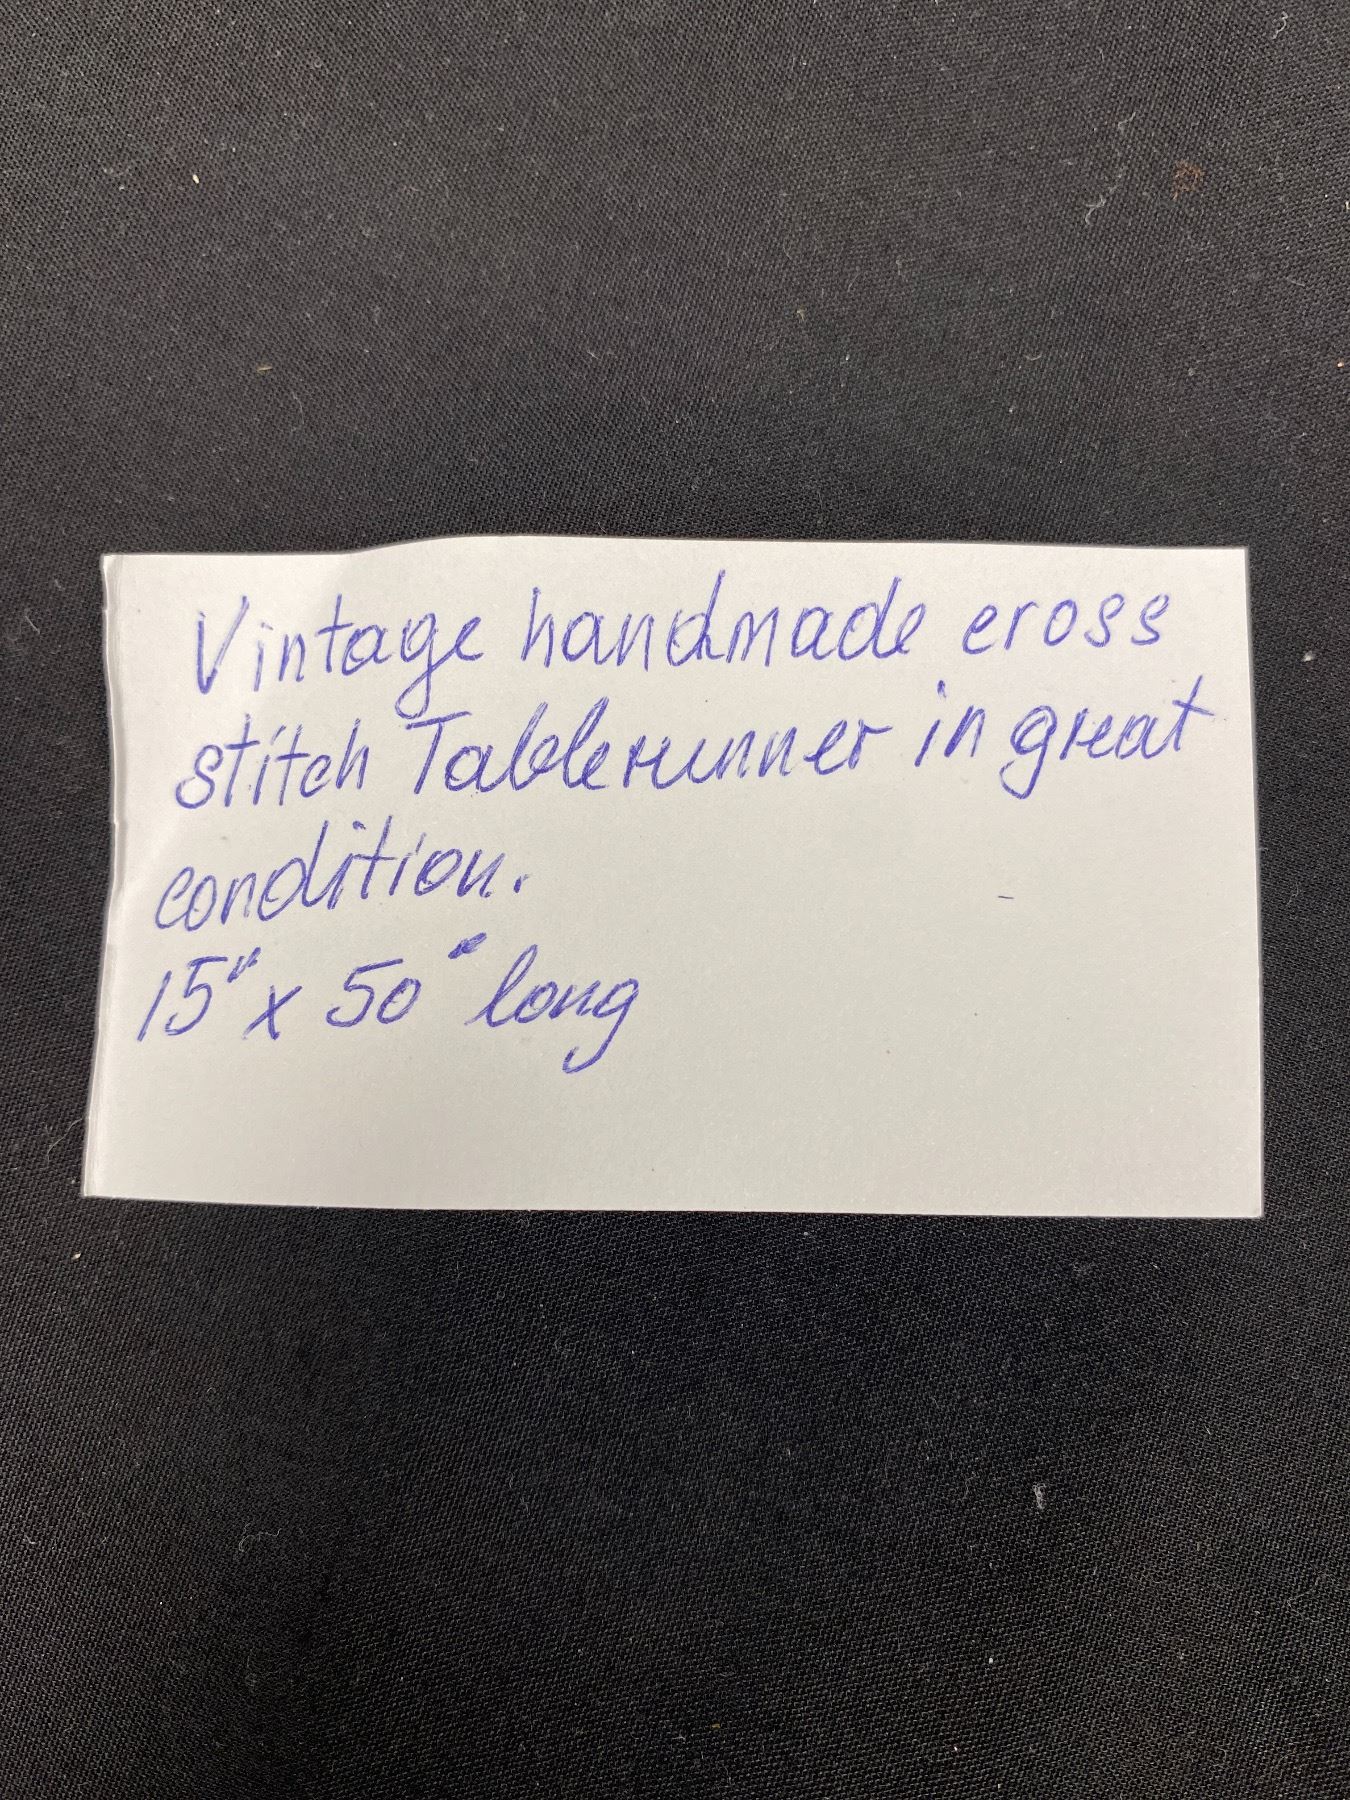 Vintage handmade cross
stitch Tablerunner in great
condition.
15" x 50" long